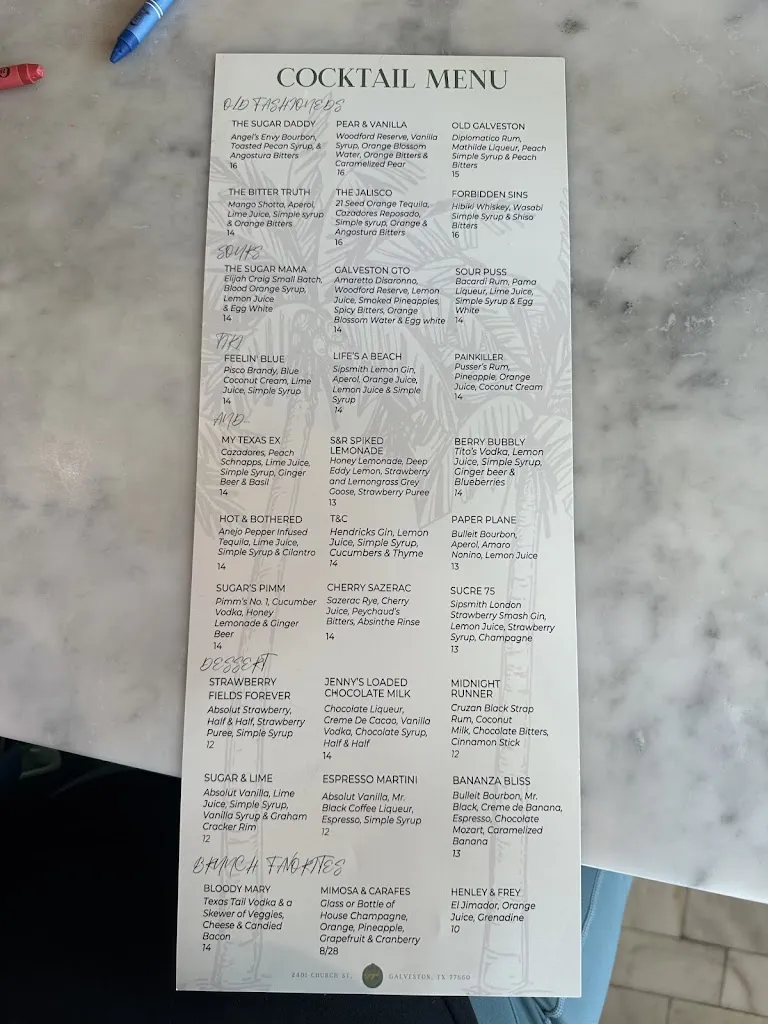 COCKTAIL MENU
OLD FASHIONEDS
THE SUGAR DADDY
Angel's Envy Bourbon,
Toasted Pecan Syrup, &
Angostura Bitters
16
PEAR & VANILLA
Woodford Reserve, Vanilla
Syrup, Orange Blossom
Water, Orange Bitters &
Caramelized Pear
16
OLD GALVESTON
Diplomatico Rum,
Mathilde Liqueur, Peach
Simple Syrup & Peach
Bitters
15
THE BITTER TRUTH
Mango Shotta, Aperol,
Lime Juice, Simple syrup
& Orange Bitters
14
THE JALISCO
21 Seed Orange Tequila,
Cazadores Reposado,
Simple syrup, Orange &
Angostura Bitters
16
FORBIDDEN SINS
Hibiki Whiskey, Wasabi
Simple Syrup & Shiso
Bitters
16
SOURS
THE SUGAR MAMA
Elijah Craig Small Batch,
Blood Orange Syrup,
Lemon Juice
& Egg White
14
GALVESTON GTO
Amaretto Disaronno,
Woodford Reserve, Lemon
Juice, Smoked Pineapples,
Spicy Bitters, Orange
Blossom Water & Egg white
14
SOUR PUSS
Bacardi Rum, Pama
Liqueur, Lime Juice,
Simple Syrup & Egg
White
14
TIKI
FEELIN' BLUE
Pisco Brandy, Blue
Coconut Cream, Lime
Juice, Simple Syrup
14
LIFE'S A BEACH
Sipsmith Lemon Gin,
Aperol, Orange Juice,
Lemon Juice & Simple
Syrup
14
PAINKILLER
Pusser's Rum,
Pineapple, Orange
Juice, Coconut Cream
14
AND...
MY TEXAS EX
Cazadores, Peach
Schnapps, Lime Juice,
Simple Syrup, Ginger
Beer & Basil
14
S&R SPIKED
LEMONADE
Honey Lemonade, Deep
Eddy Lemon, Strawberry
and Lemongrass Grey
Goose, Strawberry Puree
13
BERRY BUBBLY
Tito's Vodka, Lemon
Juice, Simple Syrup,
Ginger beer &
Blueberries
14
HOT & BOTHERED
Anejo Pepper Infused
Tequila, Lime Juice,
Simple Syrup & Cilantro
14
T&C
Hendricks Gin, Lemon
Juice, Simple Syrup,
Cucumbers & Thyme
14
PAPER PLANE
Bulleit Bourbon,
Aperol, Amaro
Nonino, Lemon Juice
13
SUGAR'S PIMM
Pimm's No. 1, Cucumber
Vodka, Honey
Lemonade & Ginger
Beer
14
CHERRY SAZERAC
Sazerac Rye, Cherry
Juice, Peychaud's
Bitters, Absinthe Rinse
14
SUCRE 75
Sipsmith London
Strawberry Smash Gin,
Lemon Juice, Strawberry
Syrup, Champagne
13
DESSERT
STRAWBERRY
FIELDS FOREVER
Absolut Strawberry,
Half & Half, Strawberry
Puree, Simple Syrup
12
JENNY'S LOADED
CHOCOLATE MILK
Chocolate Liqueur,
Creme De Cacao, Vanilla
Vodka, Chocolate Syrup,
Half & Half
14
MIDNIGHT
RUNNER
Cruzan Black Strap
Rum, Coconut
Milk, Chocolate Bitters,
Cinnamon Stick
12
SUGAR & LIME
Absolut Vanilla, Lime
Juice, Simple Syrup,
Vanilla Syrup & Graham
Cracker Rim
12
ESPRESSO MARTINI
Absolut Vanilla, Mr.
Black Coffee Liqueur,
Espresso, Simple Syrup
12
BANANZA BLISS
Bulleit Bourbon, Mr.
Black, Creme de Banana,
Espresso, Chocolate
Mozart, Caramelized
Banana
13
BRUNCH FAVORITES
BLOODY MARY
Texas Tail Vodka & a
Skewer of Veggies,
Cheese & Candied
Bacon
14
MIMOSA & CARAFES
Glass or Bottle of
House Champagne,
Orange, Pineapple,
Grapefruit & Cranberry
8/28
HENLEY & FREY
El Jimador, Orange
Juice, Grenadine
10
2401 CHURCH ST, GALVESTON, TX 77550